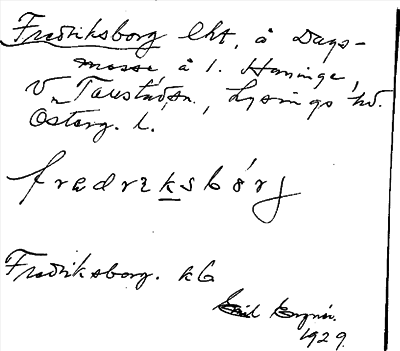 Fredriksborg lht, å Dags-
mosse å l. Haninge,
V. Tollstad sn., Lysings hd.
Österg. l.
fredrɩksbórj
Fredriksborg. kG
Emil
1929.